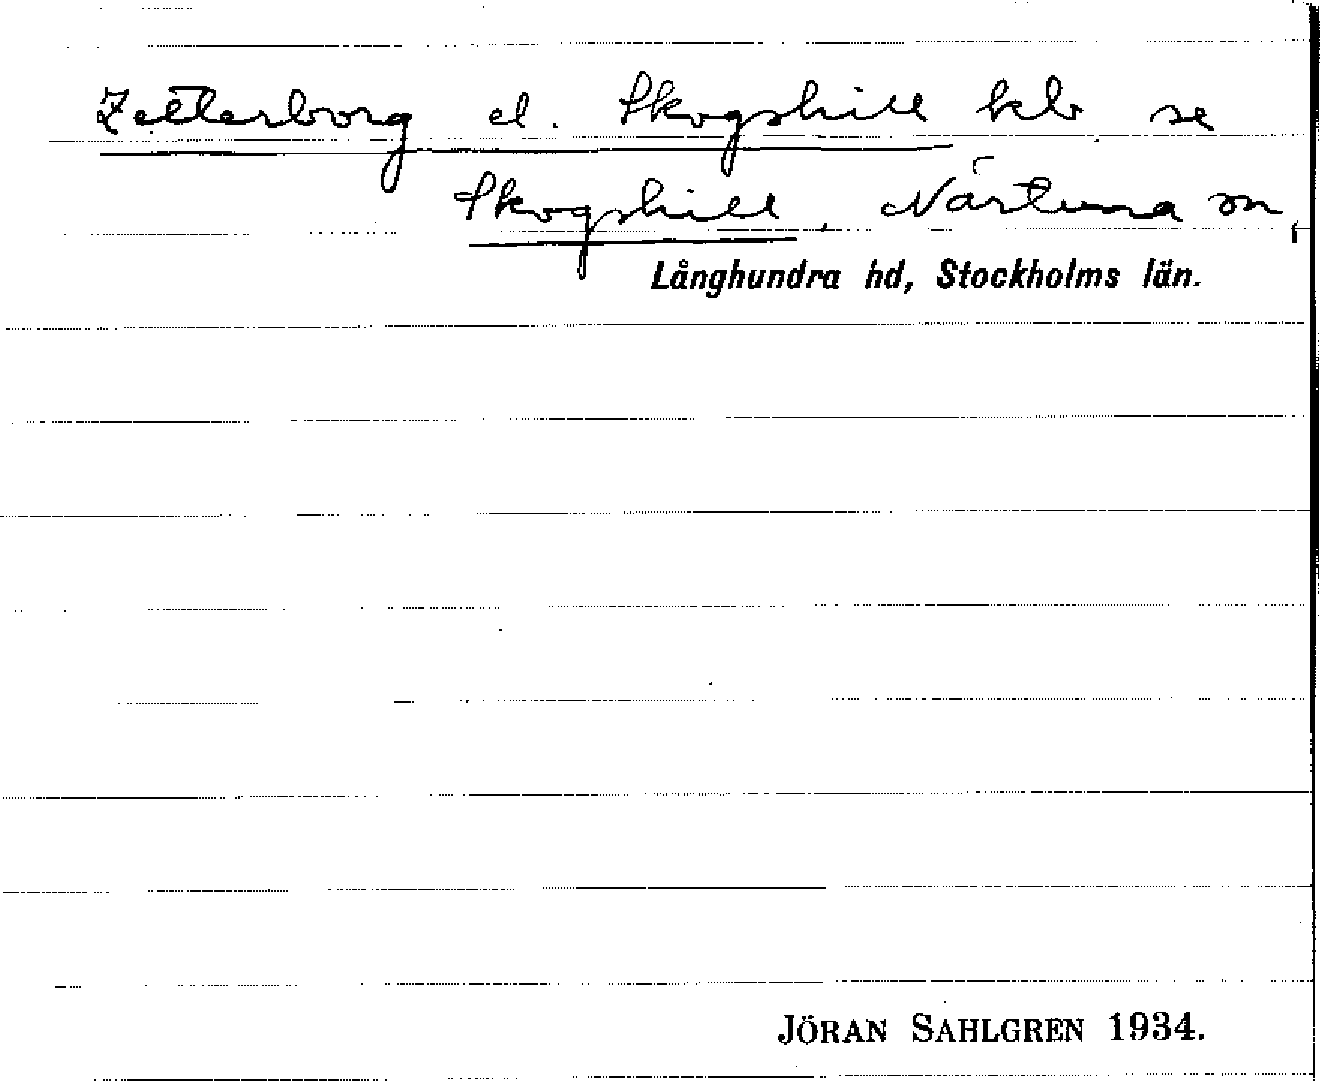 Zetterborg el. Skogshill hlb se
Skogshill, Närtuna sn,
Långhundra hd, Stockholms län.
JÖRAN SAHLGREN 1934.